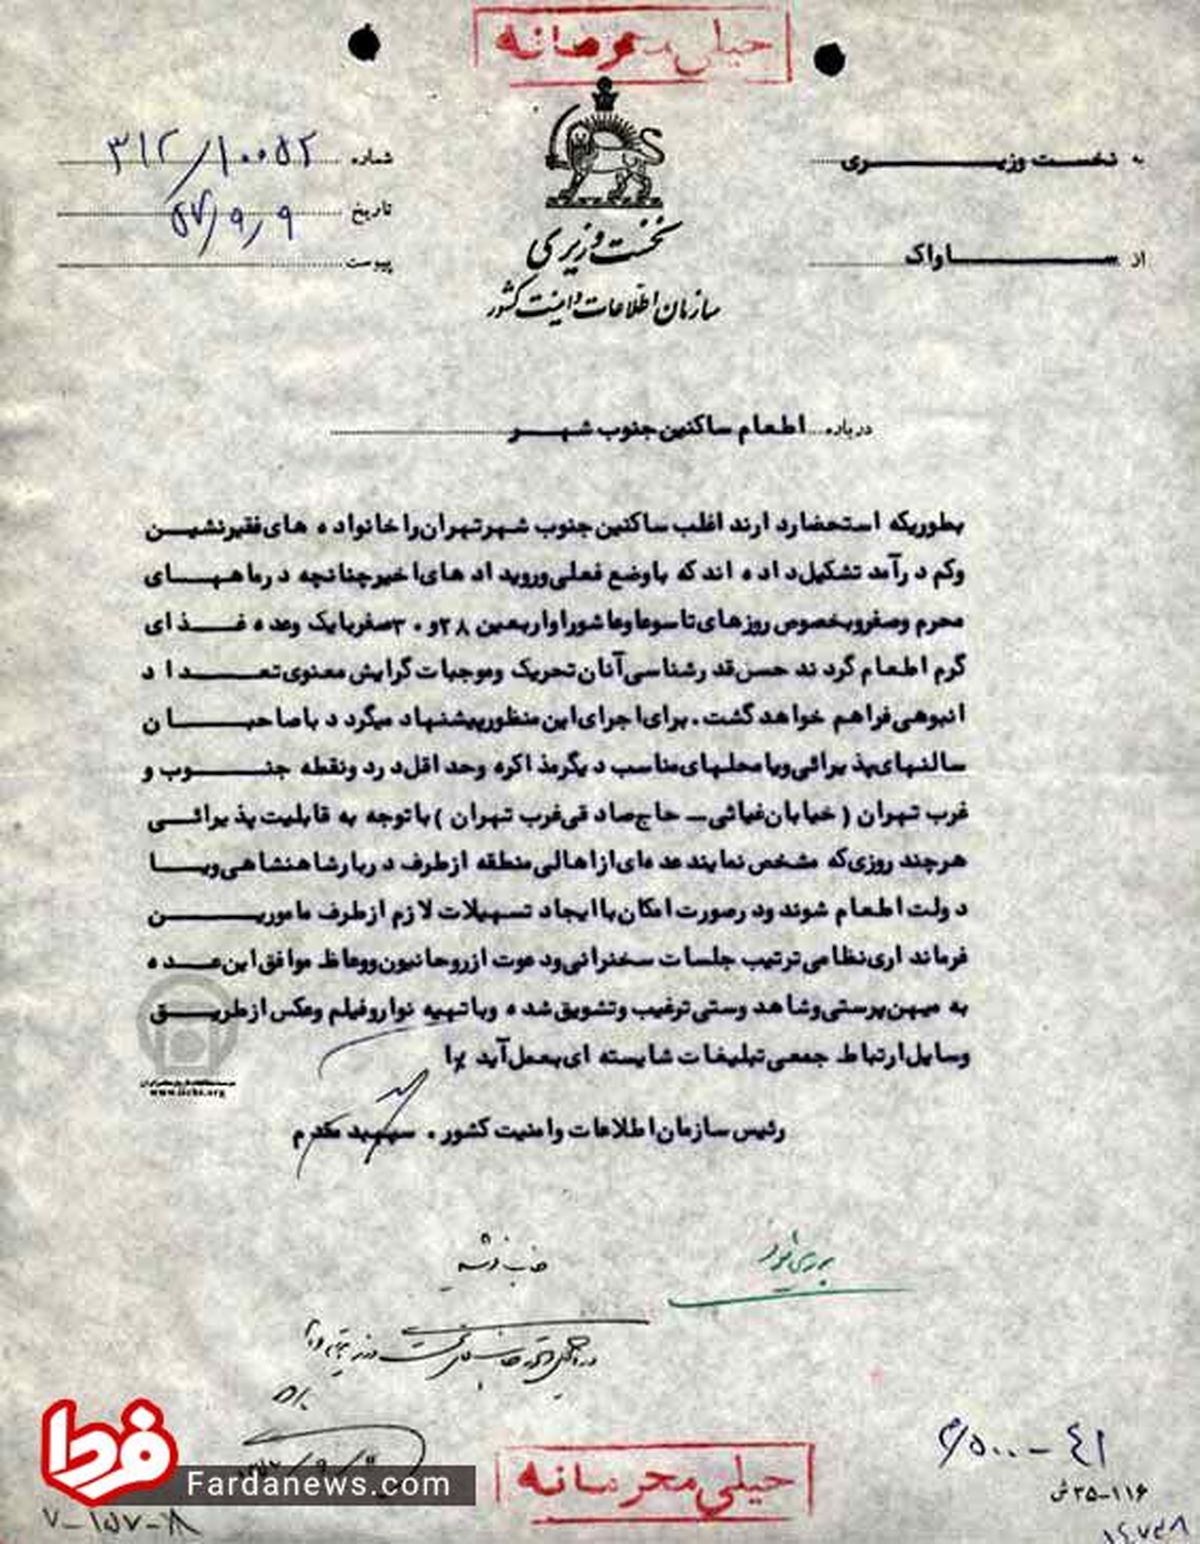 خیلی محرمانه
به نخست وزیری
شماره ۳۱۲/۱۰۰۵۲
تاریخ ۵۷/۹/۹
از ساواک
پیوست
نخست وزیری
سازمان اطلاعات و امنیت کشور
درباره اطعام ساکنین جنوب شهر
بطوریکه استحضار دارند اغلب ساکنین جنوب شهر تهران را خانواده های فقیرنشین
وکم درآمد تشکیل داده اند که با وضع فعلی ورویدادهای اخیر چنانچه درماههای
محرم وصفر وبخصوص روزهای تاسوعا وعاشورا واربعین ۲۸و۳۰صفر با یک وعده غذای
گرم اطعام گردند حس قدرشناسی آنان تحریک وموجبات گرایش معنوی تعداد
انبوهی فراهم خواهد گشت. برای اجرای این منظور پیشنهاد میگردد با صاحبان
سالنهای پذیرائی ویا محلهای مناسب دیگر مذاکره وحداقل دردونقطه جنوب و
غرب تهران (خیابان غیاثی ـ حاج صادقی غرب تهران) با توجه به قابلیت پذیرائی
هرچند روزی که مشخص نمایند عده ای ازاهالی منطقه ازطرف دربارشاهنشاهی ویا
دولت اطعام شوند ودرصورت امکان با ایجاد تسهیلات لازم ازطرف مامورین
فرمانداری نظامی ترتیب جلسات سخنرانی ودعوت ازروحانیون ووعاظ موافق این عده
به میهن پرستی وشاهدوستی ترغیب وتشویق شده وبا تهیه نوار وفیلم وعکس ازطریق
وسایل ارتباط جمعی تبلیغات شایسته ای بعمل آید
رئیس سازمان اطلاعات وامنیت کشور. سپهبد مقدم
www.iichs.org
فردا
Fardanews.com
خیلی محرمانه
۳۵-۱۱۶ ش